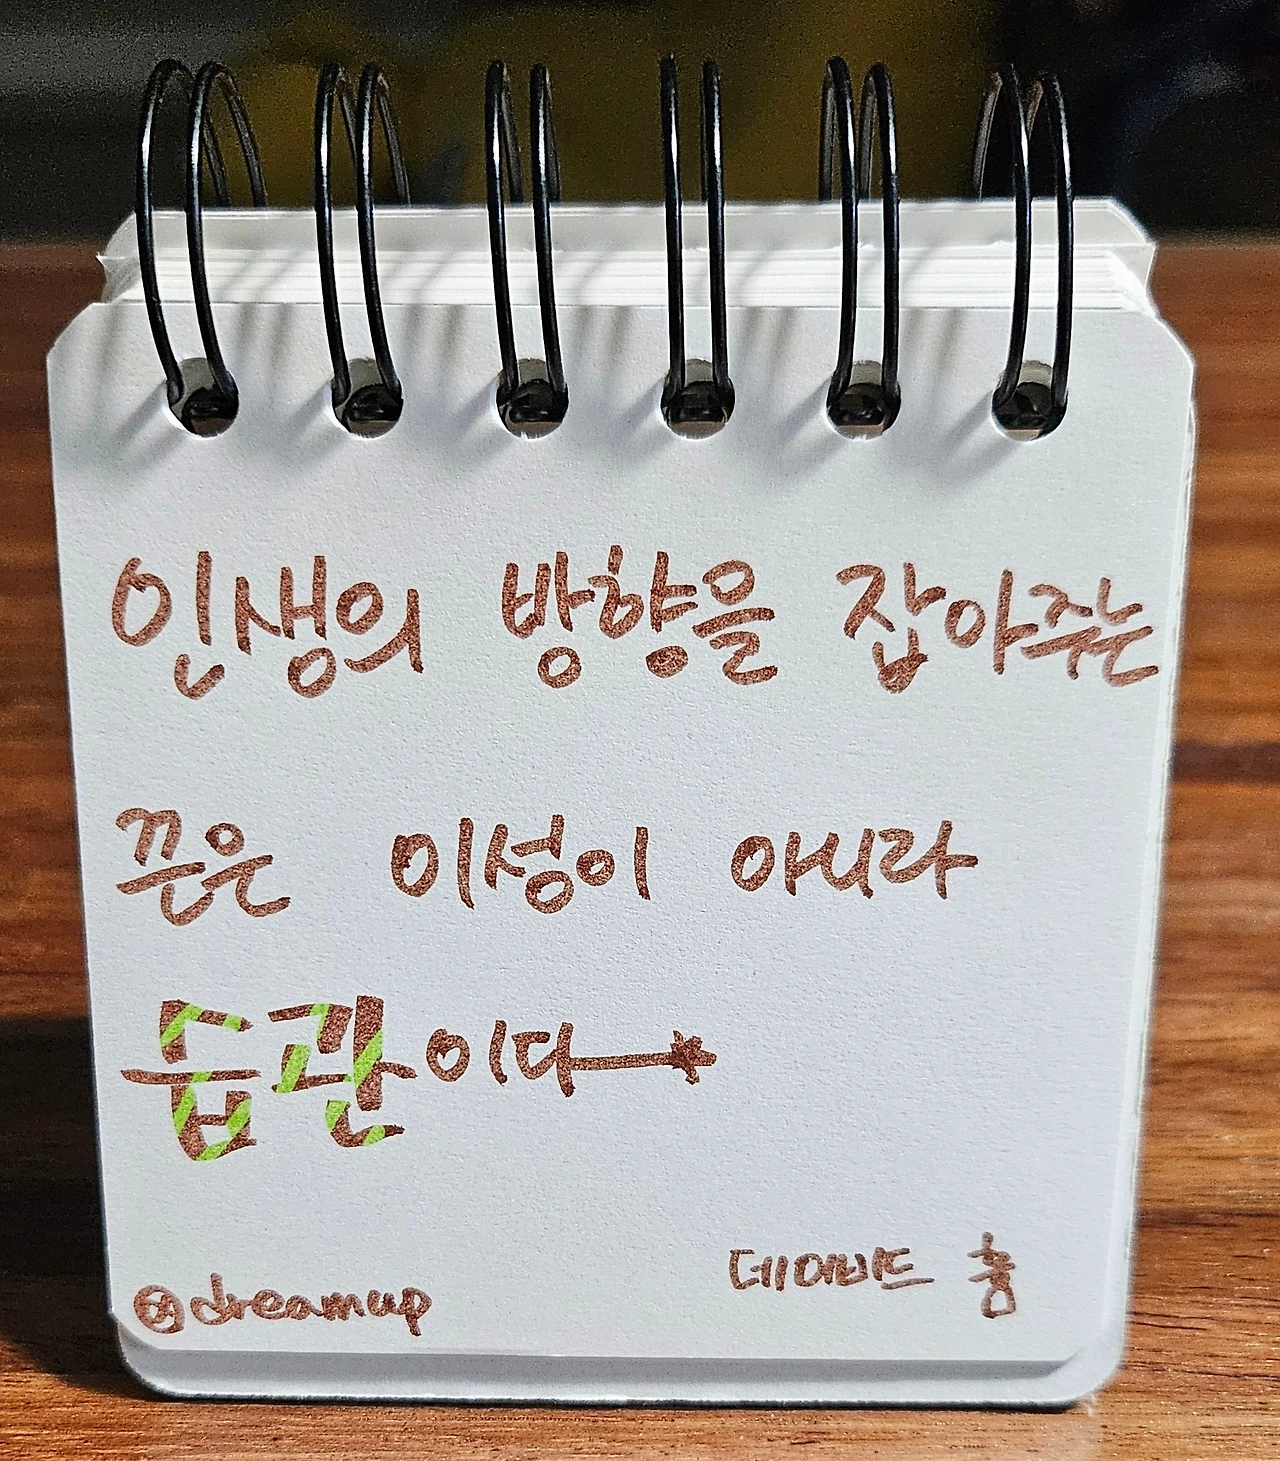 인생의 방향을 잡아주는
끈은 이성이 아니라
습관이다
데이비드 흄
@dreamup